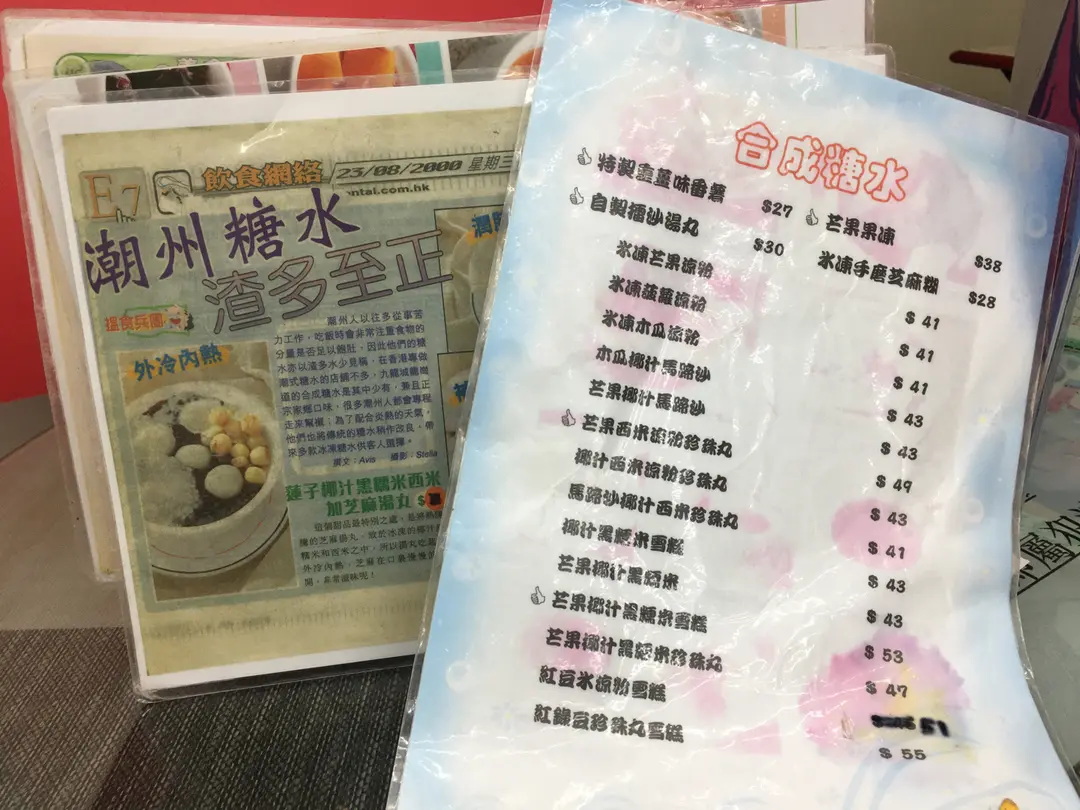 E7 飲食網絡 23/08/2000 星期三
ntai.com.hk
潮州糖水
渣多至正
搵食兵團
潮州人以往多從事苦
力工作，吃飯時會非常注重食物的
分量是否足以飽肚，因此他們的糖
水亦以渣多水少見稱，在香港專做
潮式糖水的店舖不多，九龍城龍崗
道的合成糖水是其中少有，兼且正
宗家鄉口味，很多潮州人都會專程
走來幫襯；為了配合炎熱的天氣，
他們也將傳統的糖水稍作改良，帶
來多款冰凍糖水供客人選擇。
撰文：Avis 攝影：Stella
外冷內熱
蓮子椰汁黑糯米西米
加芝麻湯丸 $
這個甜品最特別之處，是將熱
的芝麻湯丸，放於冰凍的椰汁
糯米和西米之中，所以湯丸吃
外冷內熱，芝麻在口裏慢慢
開，非常滋味呢！
合成糖水
特製薑味番薯 $27
芒果果凍 $38
自製擂沙湯丸 $30
冰凍手磨芝麻糊 $28
冰凍芒果涼粉 $ 41
冰凍菠蘿涼粉 $ 41
冰凍木瓜涼粉 $ 41
木瓜椰汁馬路沙 $ 43
芒果椰汁馬路沙 $ 43
芒果西米涼粉珍珠丸 $ 49
椰汁西米涼粉珍珠丸 $ 43
馬路沙椰汁西米珍珠丸 $ 41
椰汁黑糯米雪糕 $ 43
芒果椰汁黑糯米 $ 43
芒果椰汁黑糯米雪糕 $ 53
芒果椰汁黑糯米珍珠丸 $ 47
紅豆冰涼粉雪糕 51
紅綠豆珍珠丸雪糕 $ 55